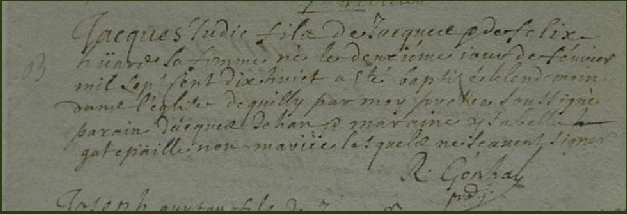 Jacques Iudic fils de Jacques & de felix
huard sa femme né le deuxiéme iour de féurier
mil sept sent dix huict a sté baptisé le lendemain
dans l'église de quilly par moy prestre soussigné
parain Jacques Dahan & maraine
gatepaille non mariés lesquels ne scauent signer
R. Gonhay
Joseph fils de